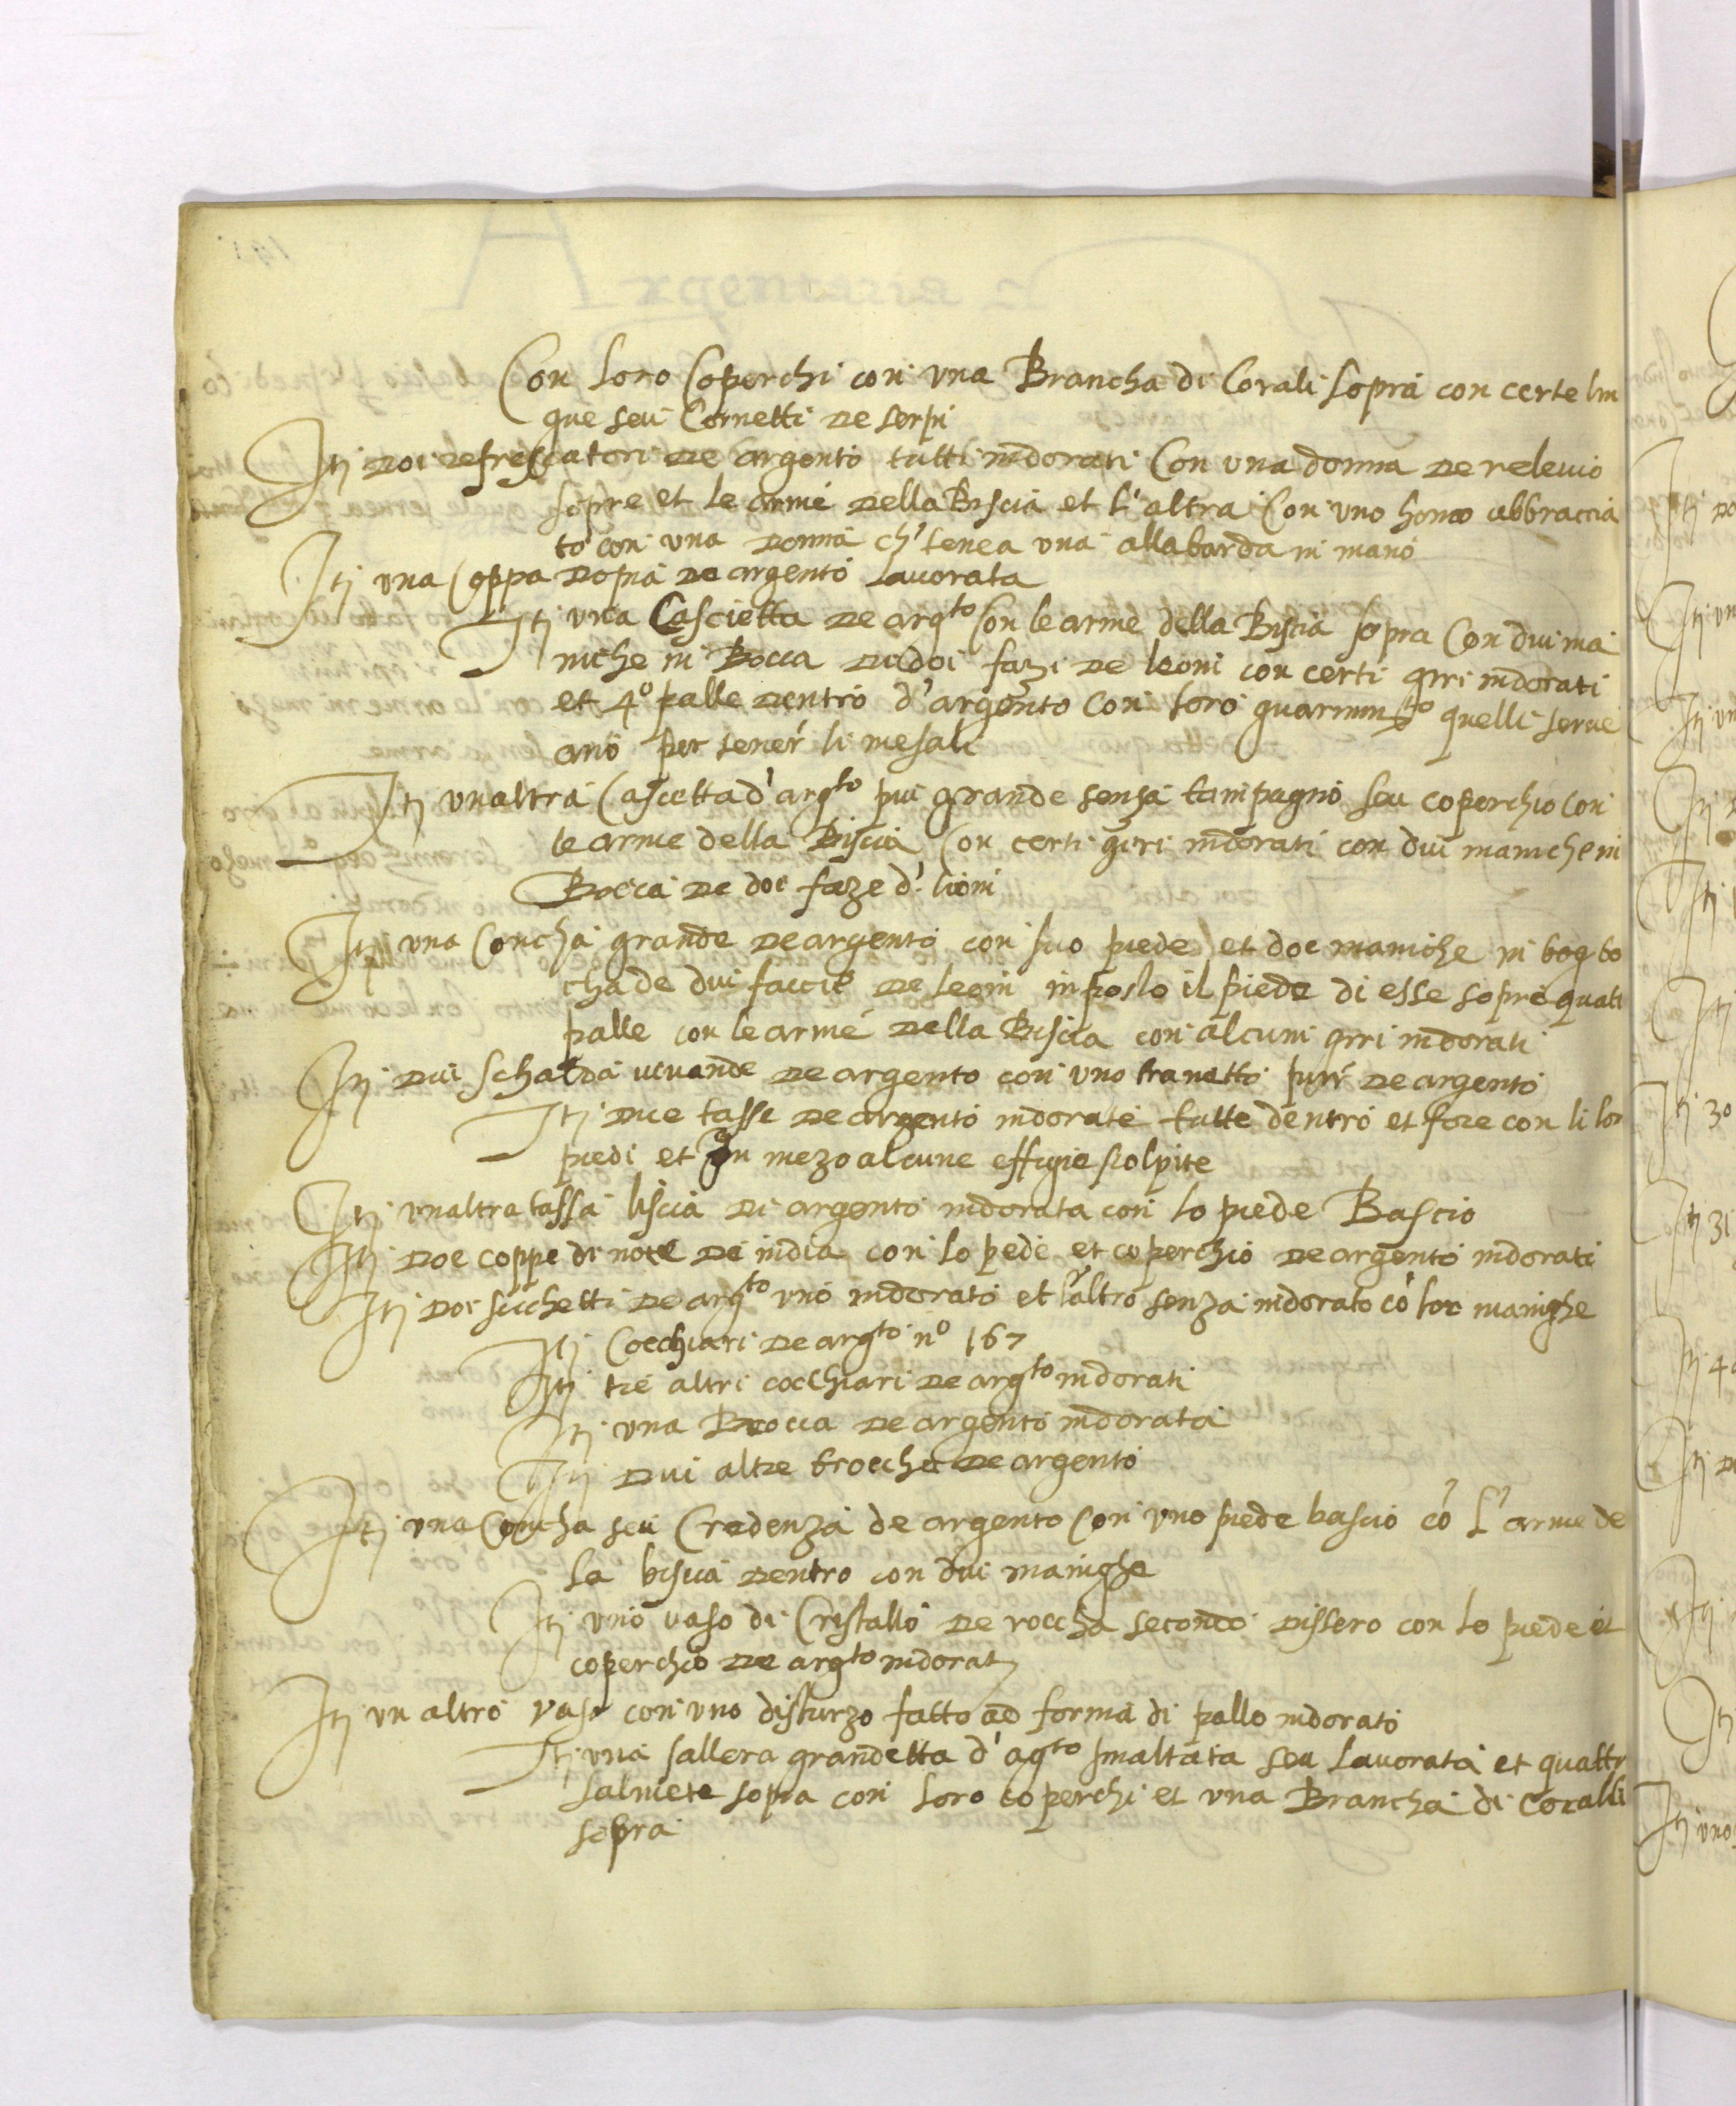 Con loro Coperchi con una Brancha di Corali sopra con certe lin
gue seu Cornetti de serpi
Itj doi refrescatori de argento tutti indorati Con una donna de relevio
sopre et le arme della Biscia et l'altra Con uno homo abbraccia
to con una donna ch' tenea una allabarda in mano
Itj una Coppa dopia de argento lavorata
Itj una Cascietta de argto Con le arme della Biscia sopra Con dui ma
niche in Bocca de doi fazi de leoni con certi giri indorati
et 4o palle dentro d'argento con loro quelli serve
ano per tener li mesali
Itj unaltra Cascetta d'argto piu grande senza tampagno seu coperchio con
le arme della Biscia Con certi giri indorati con dui maniche in
Bocca de doe faze d' lioni
Itj una Concha grande de argento con suo piede et doe maniche in
cha de dui faccie de leoni inposto il piede di esse sopre quatt
palle con le arme della Biscia con alcuni giri indorati
Itj dui schalda vivande de argento con uno tranetto pur de argento
Itj due tasse de argento indorate tutte dentro et fore con li lor
piedi et In mezo alcune effigie scolpite
Itj unaltra tassa liscia di argento indorata con lo piede Bascio
Itj doe coppe di noce de india con lo pede et coperchio de argento indorati
Itj doi sicchetti de argto uno indorato et laltro senza indorato co lor manighe
Itj Cocchiari de argto no 167
Itj tre altri cocchiari de argto indorati
Itj una Brocca de argento indorata
Itj dui altre brocche de argento
Itj una Concha seu Credenza de argento con uno piede bascio co l' arme de
la biscia dentro con dui manighe
Itj uno vaso di Cristallo de roccha secondo dissero con lo piede et
coperchio de argto indorati
Itj un altro vaso con uno disturzo fatto ad forma di pallo indorato
Itj una sallera grandetta d'agto smaltata seu lavorata et quattr
salniete sopra con loro coperchi et una Brancha di Coralli
sopra